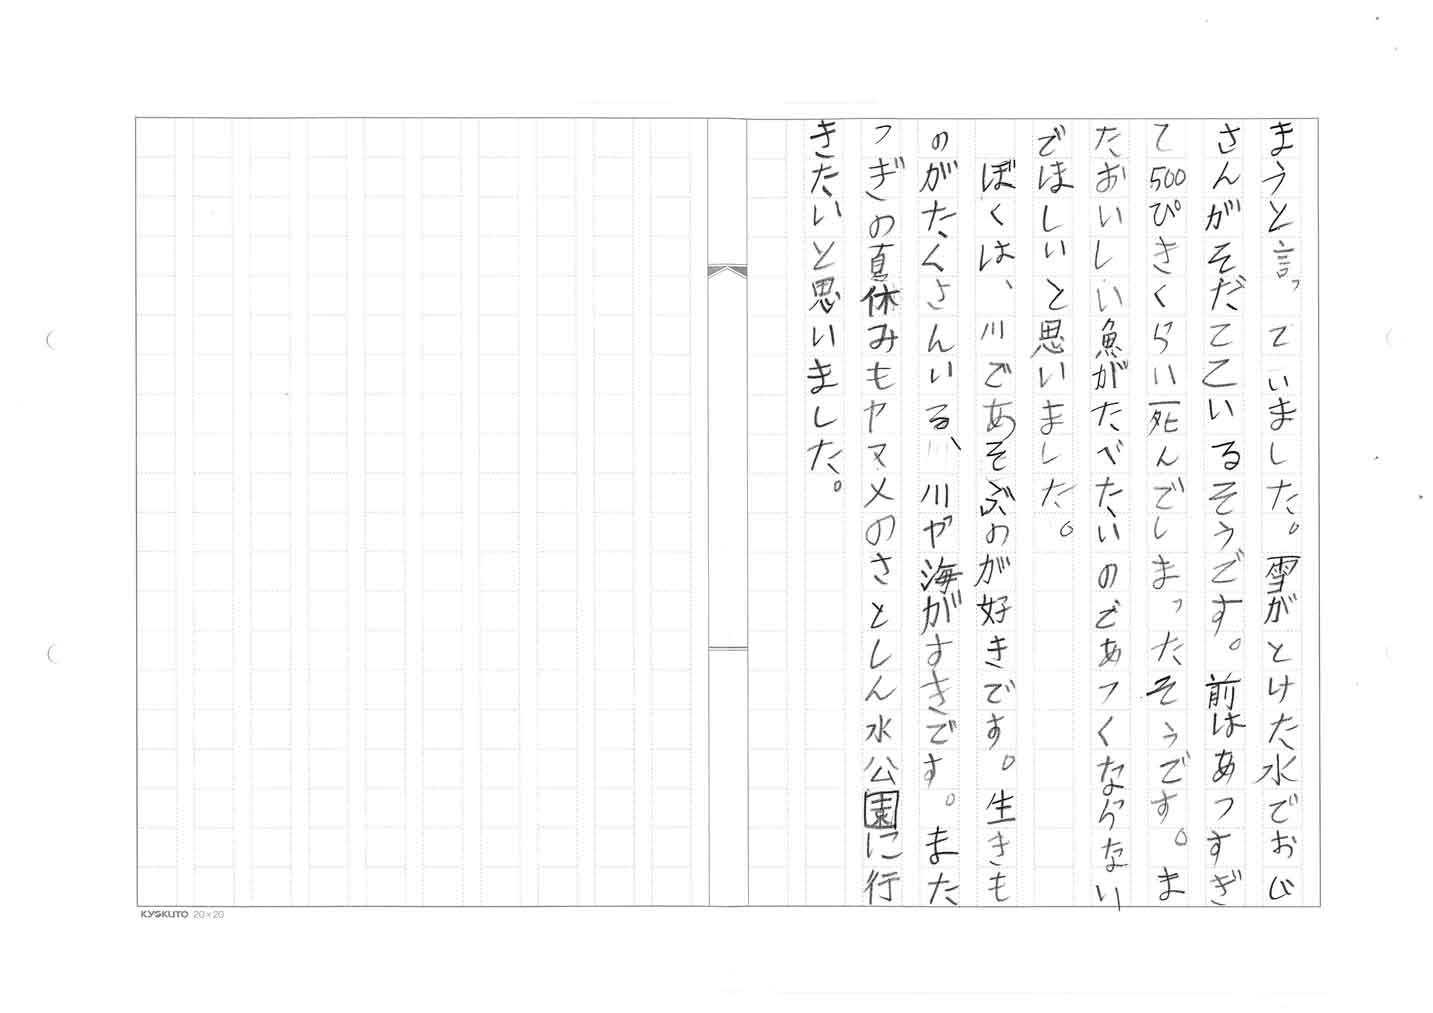 まうと言っていました。雪がとけた水でおじ
さんがそだてているそうです。前はあつすぎ
て500ぴきくらい死んでしまったそうです。ま
たおいしい魚がたべたいのであつくならない
でほしいと思いました。
ぼくは、川であそぶのが好きです。生きも
のがたくさんいる、川や海がすきです。また
つぎの夏休みもヤマメのさとしん水公園に行
きたいと思いました。
KYOKUTO 20×20